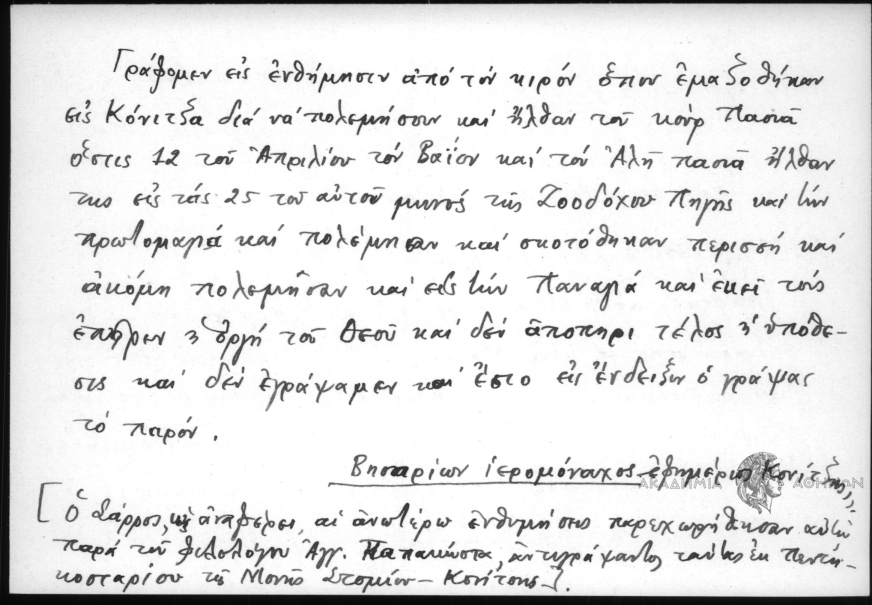 Γράφομεν εἰς ἐνθήμησιν ἀπό τόν κιρόν ὅπου ἐμαξοθήκαν
εἰς Κόνιτζα διά νά πολεμήσουν καί ἦλθαν τοῦ κούρ Πασιᾶ
ὅστις 12 τοῦ Ἀπριλίου τόν Βαΐον καί τόν Ἀλῆ πασιᾶ ἦλθαν
της εἰς τάς 25 τοῦ αὐτοῦ μηνός τῆς Ζοοδόχου Πηγῆς καί τήν
πρωτομαγιά καί πολέμησαν καί σκοτόθηκαν περισσή καί
ἀκόμη πολεμῆσαν καί εἰς τήν Παναγιά καί ἐκεῖ τούς
ἐπῆρεν ἡ ὀργή τοῦ Θεοῦ καί δέν ἀποπηρι τέλος ἡ ὑπόθε-
σις καί δέν ἐγράψαμεν καί ἔστο εἰς ἔνδειξιν ὁ γράψας
τό παρόν.
Βησαρίων ἱερομόναχος ἐφημέριος Κονίτζης
ΑΚΑΔΗΜΙΑ ΑΘΗΝΩΝ
[Ὁ Σάρρος, ὡς ἀναφέρει, αἱ ἀνωτέρω ἐνθυμήσεις παρεχωρήθησαν αὐτῷ
παρά τοῦ φιλολόγου Ἀγγ. Παπακώστα, ἀντιγράψαντος ταύτας ἐκ Πεντη-
κοσταρίου τῆς Μονῆς Στομίου - Κονίτσης].